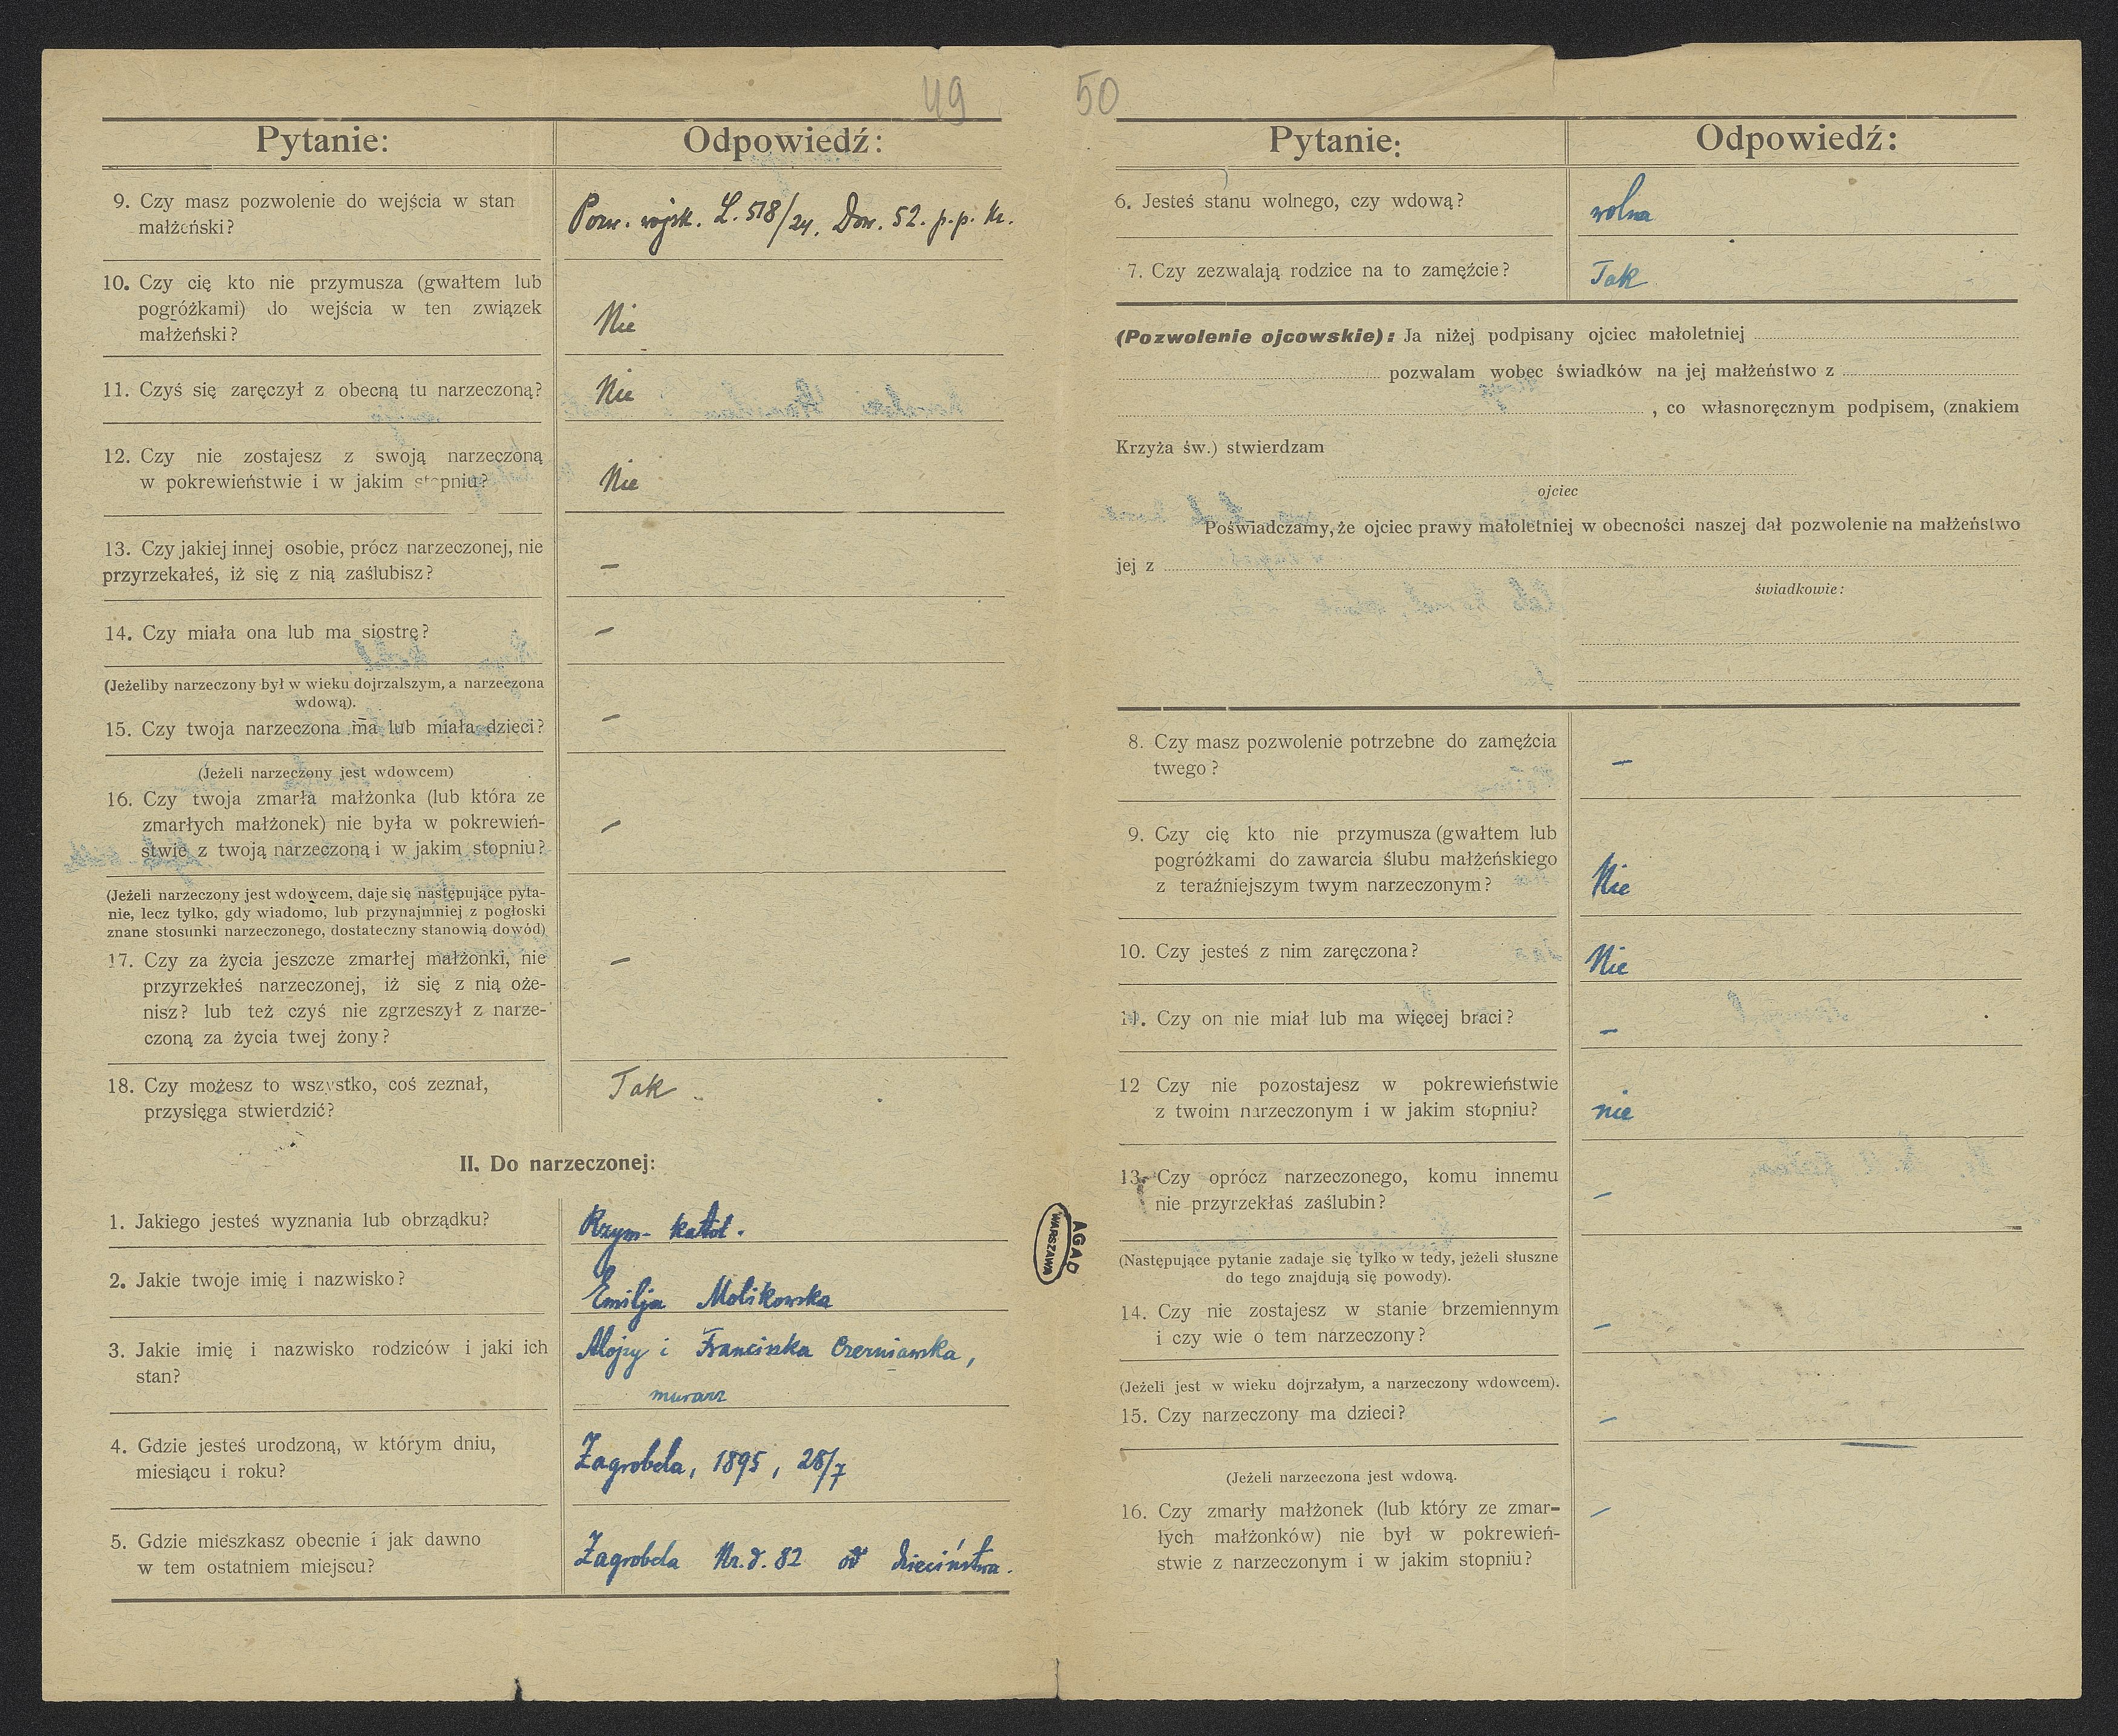 49
Pytanie:
Odpowiedź:
9. Czy masz pozwolenie do wejścia w stan
małżeński?
Pozw. wojsk. L. 518/24. Dow. 52. p. p. Kr.
10. Czy cię kto nie przymusza (gwałtem lub
pogróżkami) do wejścia w ten związek
małżeński?
Nie
11. Czyś się zaręczył z obecną tu narzeczoną?
Nie
12. Czy nie zostajesz z swoją narzeczoną
w pokrewieństwie i w jakim stopniu?
Nie
13. Czy jakiej innej osobie, prócz narzeczonej, nie
przyrzekałeś, iż się z nią zaślubisz?
–
14. Czy miała ona lub ma siostrę?
–
(Jeżeliby narzeczony był w wieku dojrzalszym, a narzeczona
wdową).
15. Czy twoja narzeczona ma lub miała dzieci?
–
(Jeżeli narzeczony jest wdowcem)
16. Czy twoja zmarła małżonka (lub która ze
zmarłych małżonek) nie była w pokrewień-
stwie z twoją narzeczoną i w jakim stopniu?
–
(Jeżeli narzeczony jest wdowcem, daje się następujące pyta-
nie, lecz tylko, gdy wiadomo, lub przynajmniej z pogłoski
znane stosunki narzeczonego, dostateczny stanowią dowód)
17. Czy za życia jeszcze zmarłej małżonki, nie
przyrzekłeś narzeczonej, iż się z nią oże-
nisz? lub też czyś nie zgrzeszył z narze-
czoną za życia twej żony?
–
18. Czy możesz to wszystko, coś zeznał,
przysięga stwierdzić?
Tak
II. Do narzeczonej:
1. Jakiego jesteś wyznania lub obrządku?
Rzym- katol.
2. Jakie twoje imię i nazwisko?
Emilja Molikowska
3. Jakie imię i nazwisko rodziców i jaki ich
stan?
Alojzy i Franciszka Czerniawska,
murarz
4. Gdzie jesteś urodzoną, w którym dniu,
miesiącu i roku?
Zagrobela, 1895, 28/7
5. Gdzie mieszkasz obecnie i jak dawno
w tem ostatniem miejscu?
Zagrobela Nr. d. 82 od dzieciństwa.
AGAD
WARSZAWA
50
Pytanie:
Odpowiedź:
6. Jesteś stanu wolnego, czy wdową?
wolna
7. Czy zezwalają rodzice na to zamęźcie?
Tak
(Pozwolenie ojcowskie): Ja niżej podpisany ojciec małoletniej
pozwalam wobec świadków na jej małżeństwo z
, co własnoręcznym podpisem, (znakiem
Krzyża św.) stwierdzam
ojciec
Poświadczamy, że ojciec prawy małoletniej w obecności naszej dał pozwolenie na małżeństwo
jej z
świadkowie:
8. Czy masz pozwolenie potrzebne do zamęźcia
twego?
–
9. Czy cię kto nie przymusza (gwałtem lub
pogróżkami do zawarcia ślubu małżeńskiego
z teraźniejszym twym narzeczonym?
Nie
10. Czy jesteś z nim zaręczona?
Nie
11. Czy on nie miał lub ma więcej braci?
–
12 Czy nie pozostajesz w pokrewieństwie
z twoim narzeczonym i w jakim stopniu?
nie
13. Czy oprócz narzeczonego, komu innemu
nie przyrzekłaś zaślubin?
–
(Następujące pytanie zadaje się tylko w tedy, jeżeli słuszne
do tego znajdują się powody).
14. Czy nie zostajesz w stanie brzemiennym
i czy wie o tem narzeczony?
–
(Jeżeli jest w wieku dojrzałym, a narzeczony wdowcem).
15. Czy narzeczony ma dzieci?
–
(Jeżeli narzeczona jest wdową.
16. Czy zmarły małżonek (lub który ze zmar-
łych małżonków) nie był w pokrewień-
stwie z narzeczonym i w jakim stopniu?
–